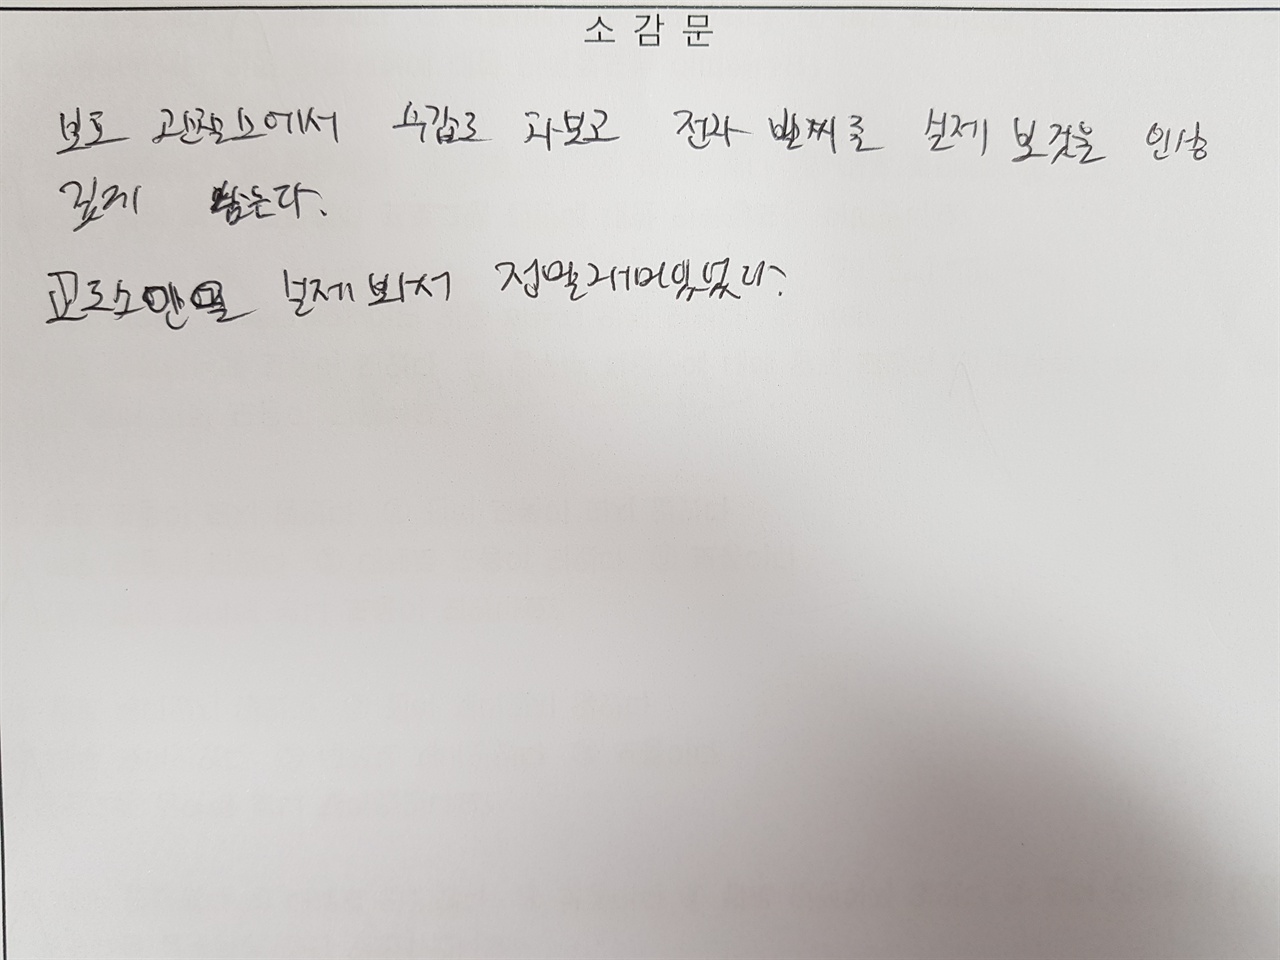 소 감 문
보호 관찰소에서 수갑도 차보고 전자 발찌를 실제 보것을 인상
깊게 남는다.
교도소안을 실제 봐서 정말재미있었다.